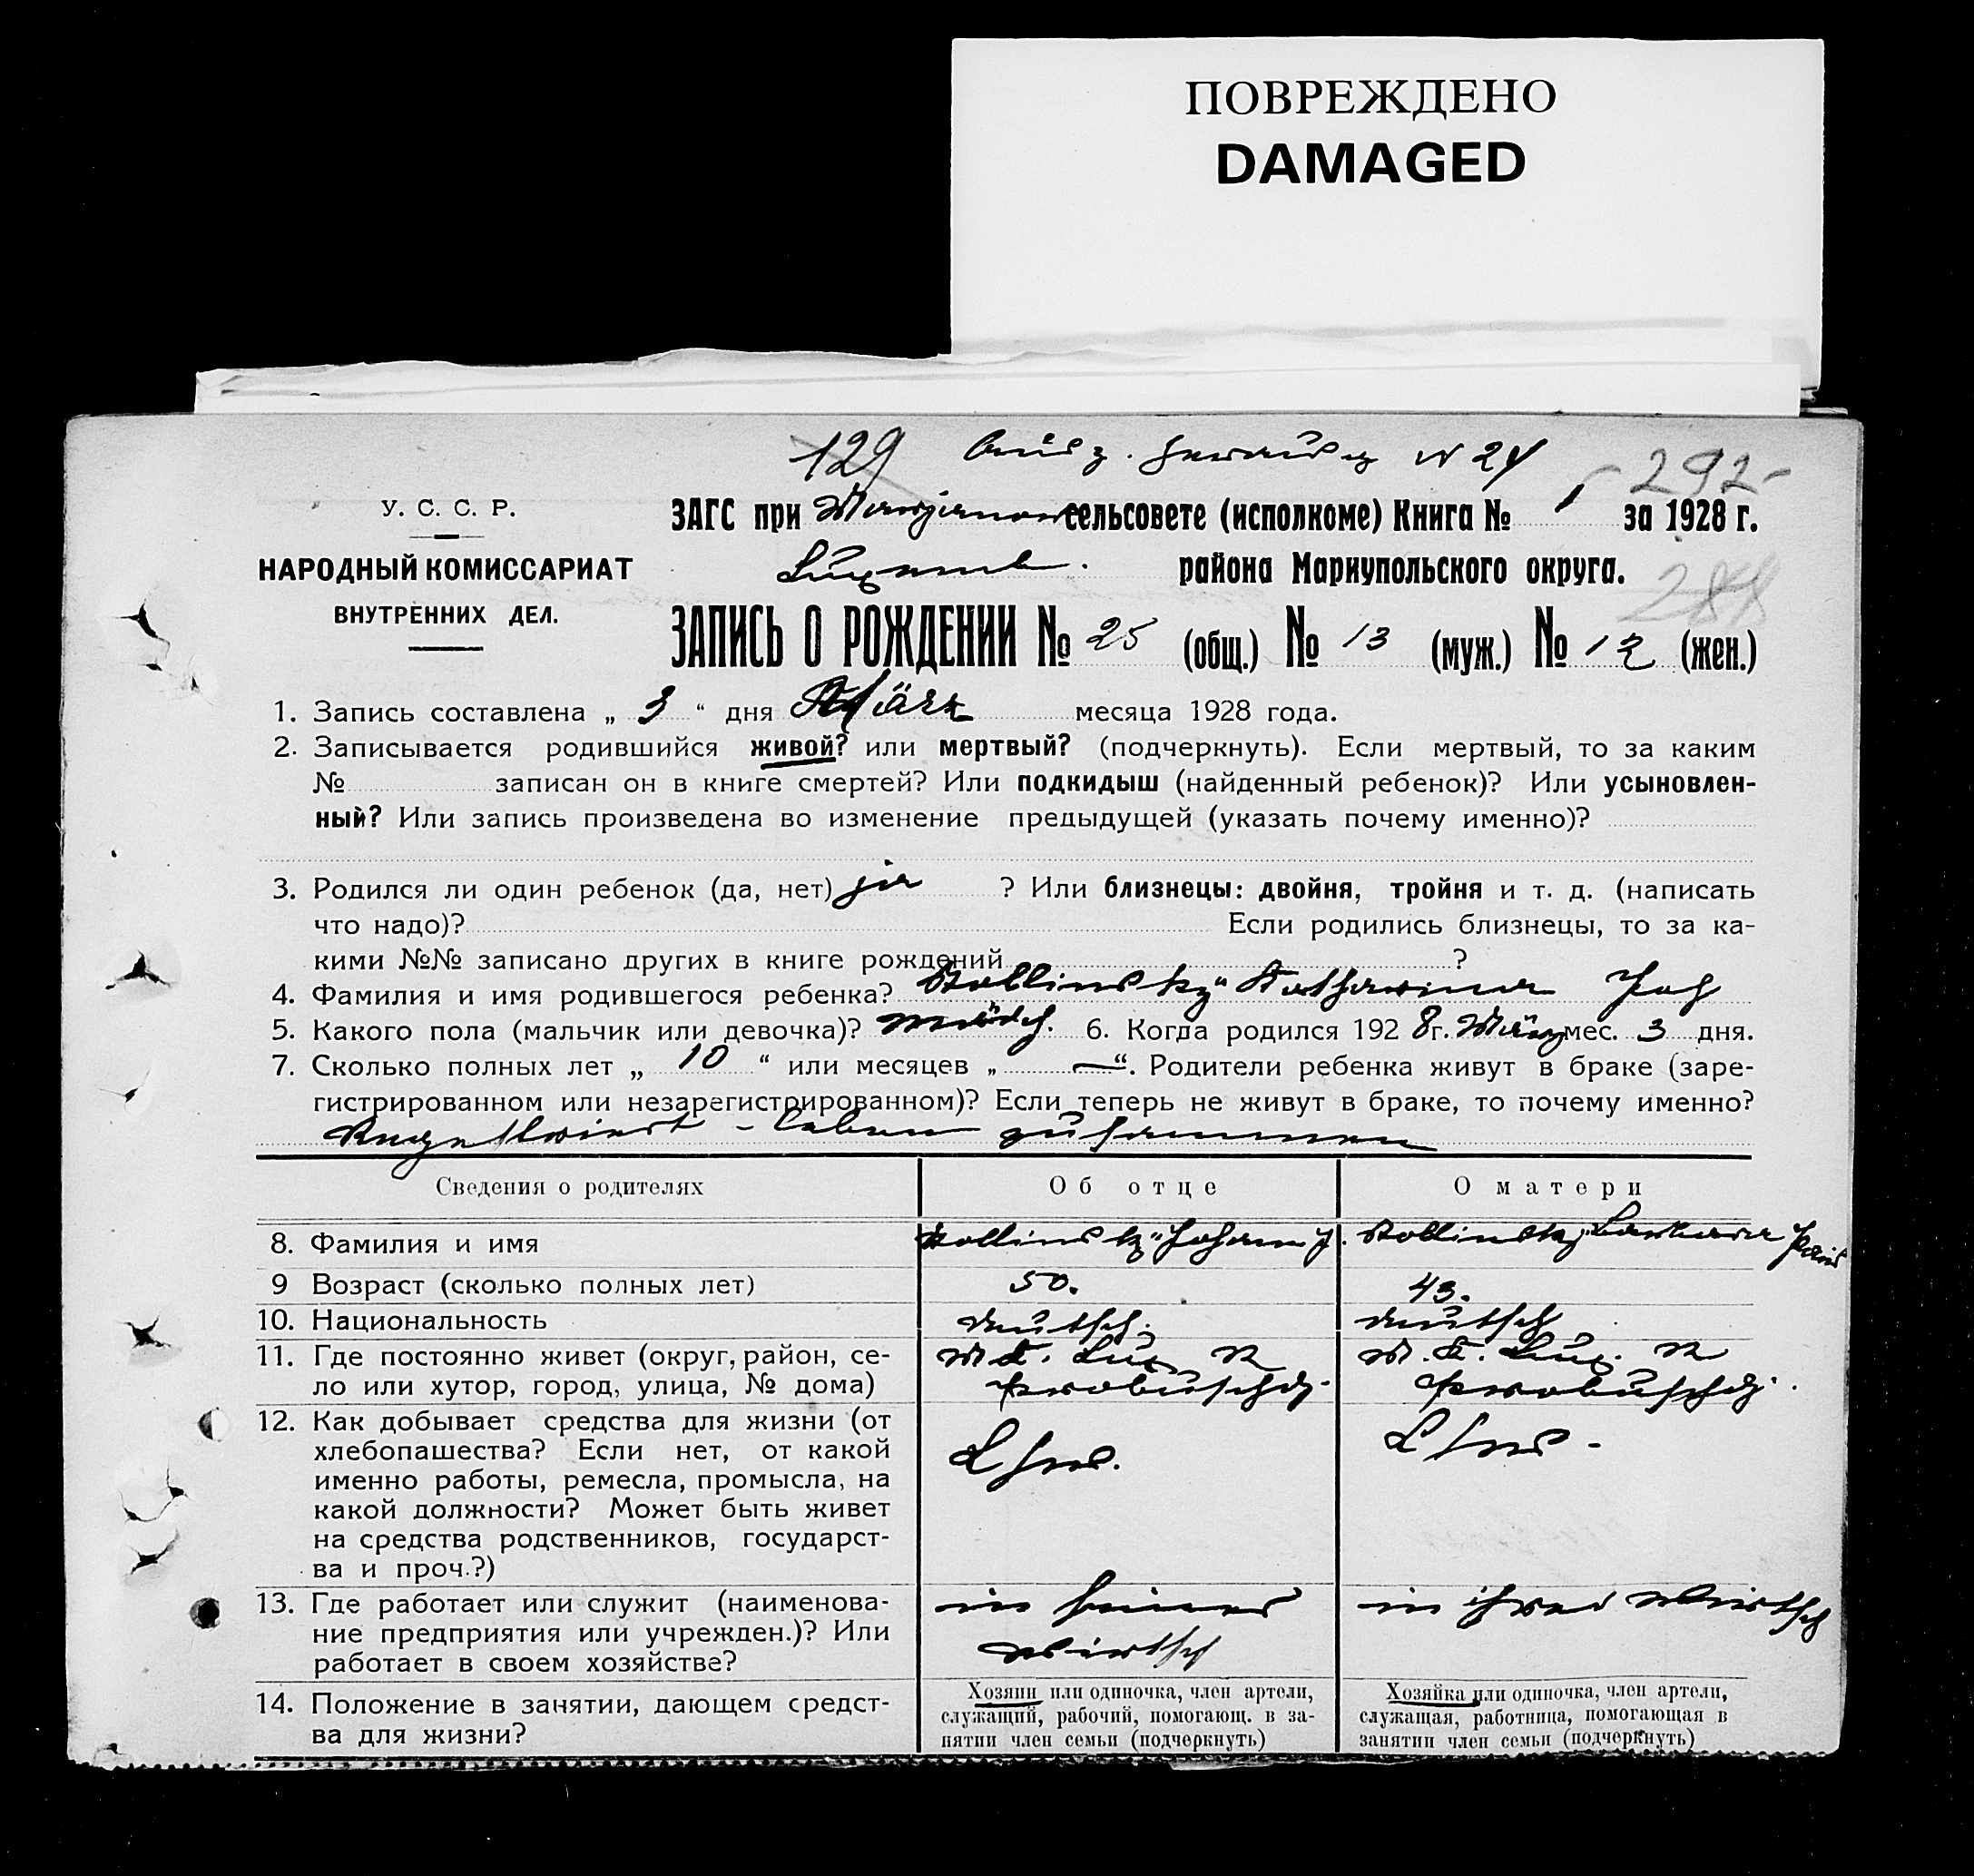 ПОВРЕЖДЕНО
DAMAGED
129 № 24 292
У. С. С. Р. ЗАГС при сельсовете (исполкоме) Книга № 1 за 1928 г.
НАРОДНЫЙ КОМИССАРИАТ района Мариупольского округа.
ВНУТРЕННИХ ДЕЛ.
ЗАПИСЬ О РОЖДЕНИИ № 25 (общ.) № 13 (муж.) № 12 (жен.)
1. Запись составлена „ 3 “ дня März месяца 1928 года.
2. Записывается родившийся живой? или мертвый? (подчеркнуть). Если мертвый, то за каким
№ записан он в книге смертей? Или подкидыш (найденный ребенок)? Или усыновлен-
ный? Или запись произведена во изменение предыдущей (указать почему именно)?
3. Родился ли один ребенок (да, нет) ja ? Или близнецы: двойня, тройня и т. д. (написать
что надо)? Если родились близнецы, то за ка-
кими №№ записано других в книге рождений ?
4. Фамилия и имя родившегося ребенка? Katharina Joh
5. Какого пола (мальчик или девочка)? Mädch. 6. Когда родился 192 8 г. März мес. 3 дня.
7. Сколько полных лет „ 10 “ или месяцев „ — “. Родители ребенка живут в браке (заре-
гистрированном или незарегистрированном)? Если теперь не живут в браке, то почему именно?
Registriert - leben zusammen
Сведения о родителях Об отце О матери
8. Фамилия и имя Johann J. Barbara
9 Возраст (сколько полных лет) 50. 43.
10. Национальность deutsch. deutsch
11. Где постоянно живет (округ, район, се- M. K. Lux. R M. K. Lux. R
ло или хутор, город, улица, № дома)
12. Как добывает средства для жизни (от
хлебопашества? Если нет, от какой
именно работы, ремесла, промысла, на
какой должности? Может быть живет
на средства родственников, государст-
ва и проч.?)
13. Где работает или служит (наименова- in seiner in ihrer Wirtsch
ние предприятия или учрежден.)? Или Wirtsch
работает в своем хозяйстве?
14. Положение в занятии, дающем средст-
ва для жизни?
Хозяин или одиночка, член артели,
служащий, рабочий, помогающ. в за-
нятии член семьи (подчеркнуть)
Хозяйка или одиночка, член артели,
служащая, работница, помогающая в
занятии член семьи (подчеркнуть)